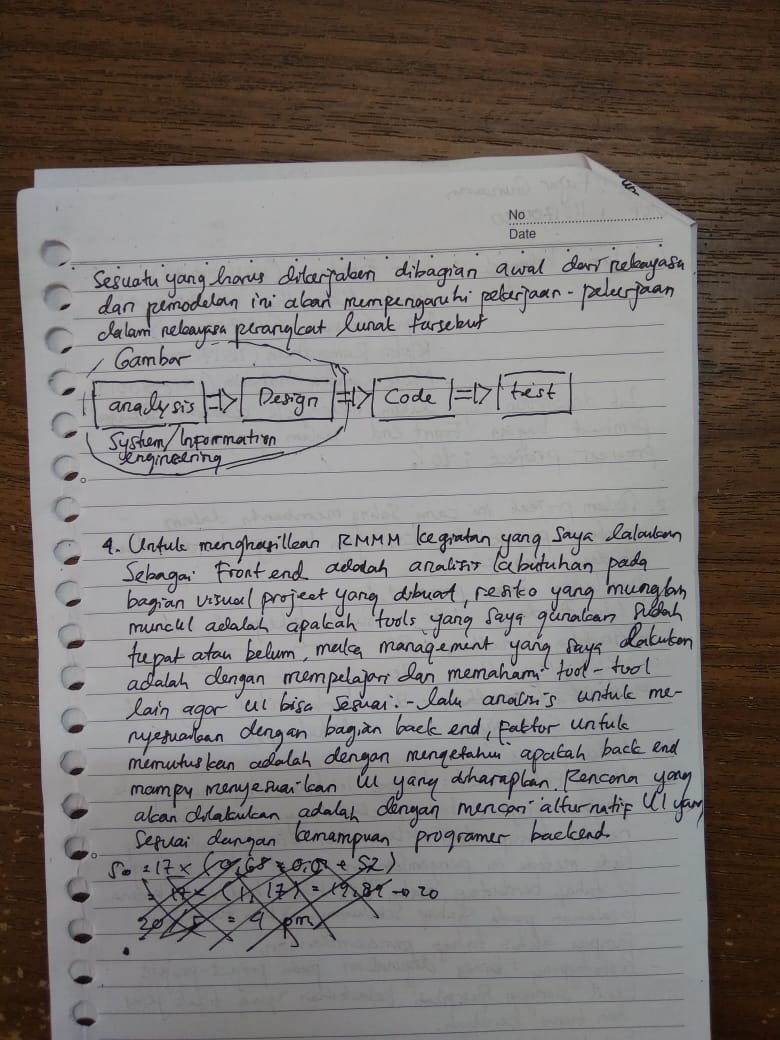 No
Date
Sesuatu yang harus dikerjakan dibagian awal dari rekayasa
dan pemodelan ini akan mempengaruhi pekerjaan - pekerjaan
dalam rekayasa perangkat lunak tersebut
Gambar
analysis => Design => Code => test
System/Information
engineering
4. Untuk menghasilkan RMMM kegiatan yang saya lakukan
Sebagai Front end adalah analisis kebutuhan pada
bagian visual project yang dibuat, resiko yang mungkin
muncul adalah apakah tools yang saya gunakan sudah
tepat atau belum, maka management yang saya lakukan
adalah dengan mempelajari dan memahami tool - tool
lain agar UI bisa sesuai. - lalu analisis untuk me-
nyesuaikan dengan bagian back end, faktor untuk
memutuskan adalah dengan mengetahui apakah back end
mampu menyesuaikan UI yang diharapkan. Rencana yang
akan dilakukan adalah dengan mencari alternatif UI yang
sesuai dengan kemampuan programer backend.
= 17 x (0,65
= 17 x (1,17) = 19,89 → 20
20 / 5 = 4 pm